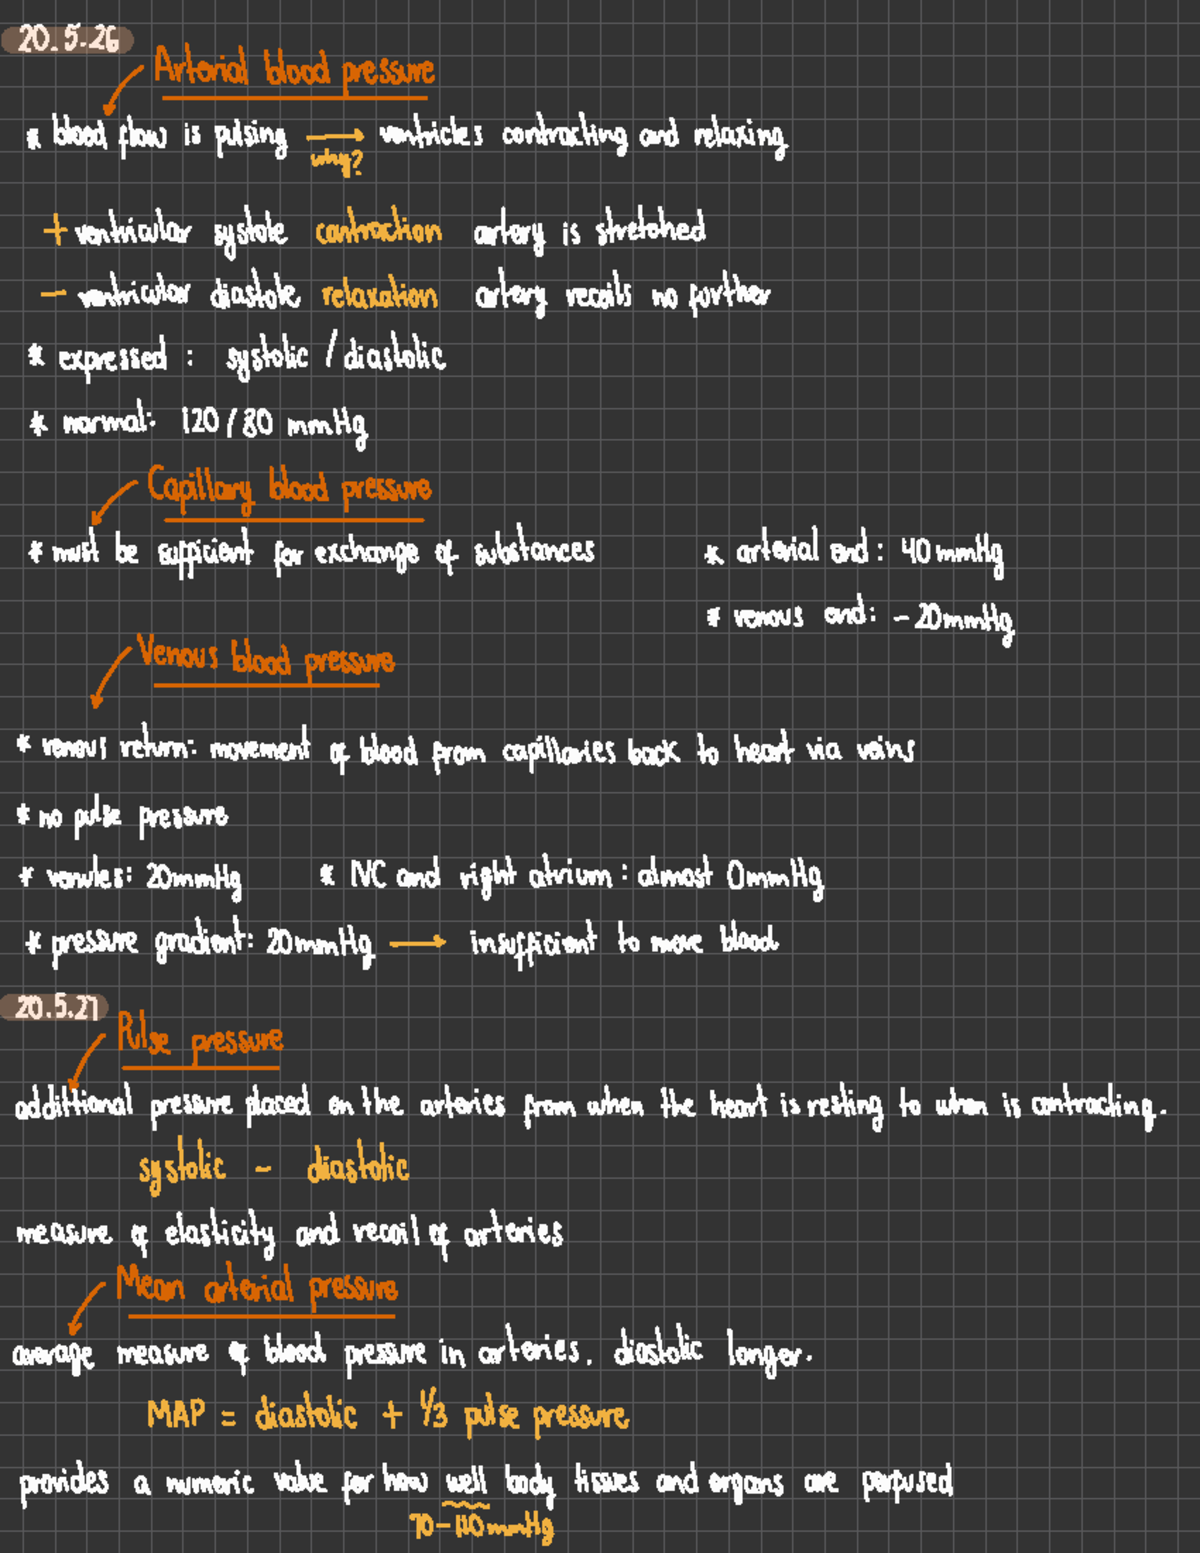 20.5.26
Arterial blood pressure
* blood flow is pulsing → ventricles contracting and relaxing
why?
+ ventricular systole contraction artery is stretched
- ventricular diastole relaxation artery recoils no further
* expressed : systolic / diastolic
* normal: 120/80 mmHg
Capillary blood pressure
* must be sufficient for exchange of substances
* arterial end: 40 mmHg
* venous end: -20mmHg
Venous blood pressure
* venous return: movement of blood from capillaries back to heart via veins
* no pulse pressure
* venules: 20mmHg * IVC and right atrium: almost 0mmHg
* pressure gradient: 20mmHg → insufficient to move blood
20.5.27
Pulse pressure
additional pressure placed on the arteries from when the heart is resting to when is contracting.
systolic - diastolic
measure of elasticity and recoil of arteries
Mean arterial pressure
average measure of blood pressure in arteries. diastolic longer.
MAP = diastolic + 1/3 pulse pressure
provides a numeric value for how well body tissues and organs are perfused
70-110mmHg